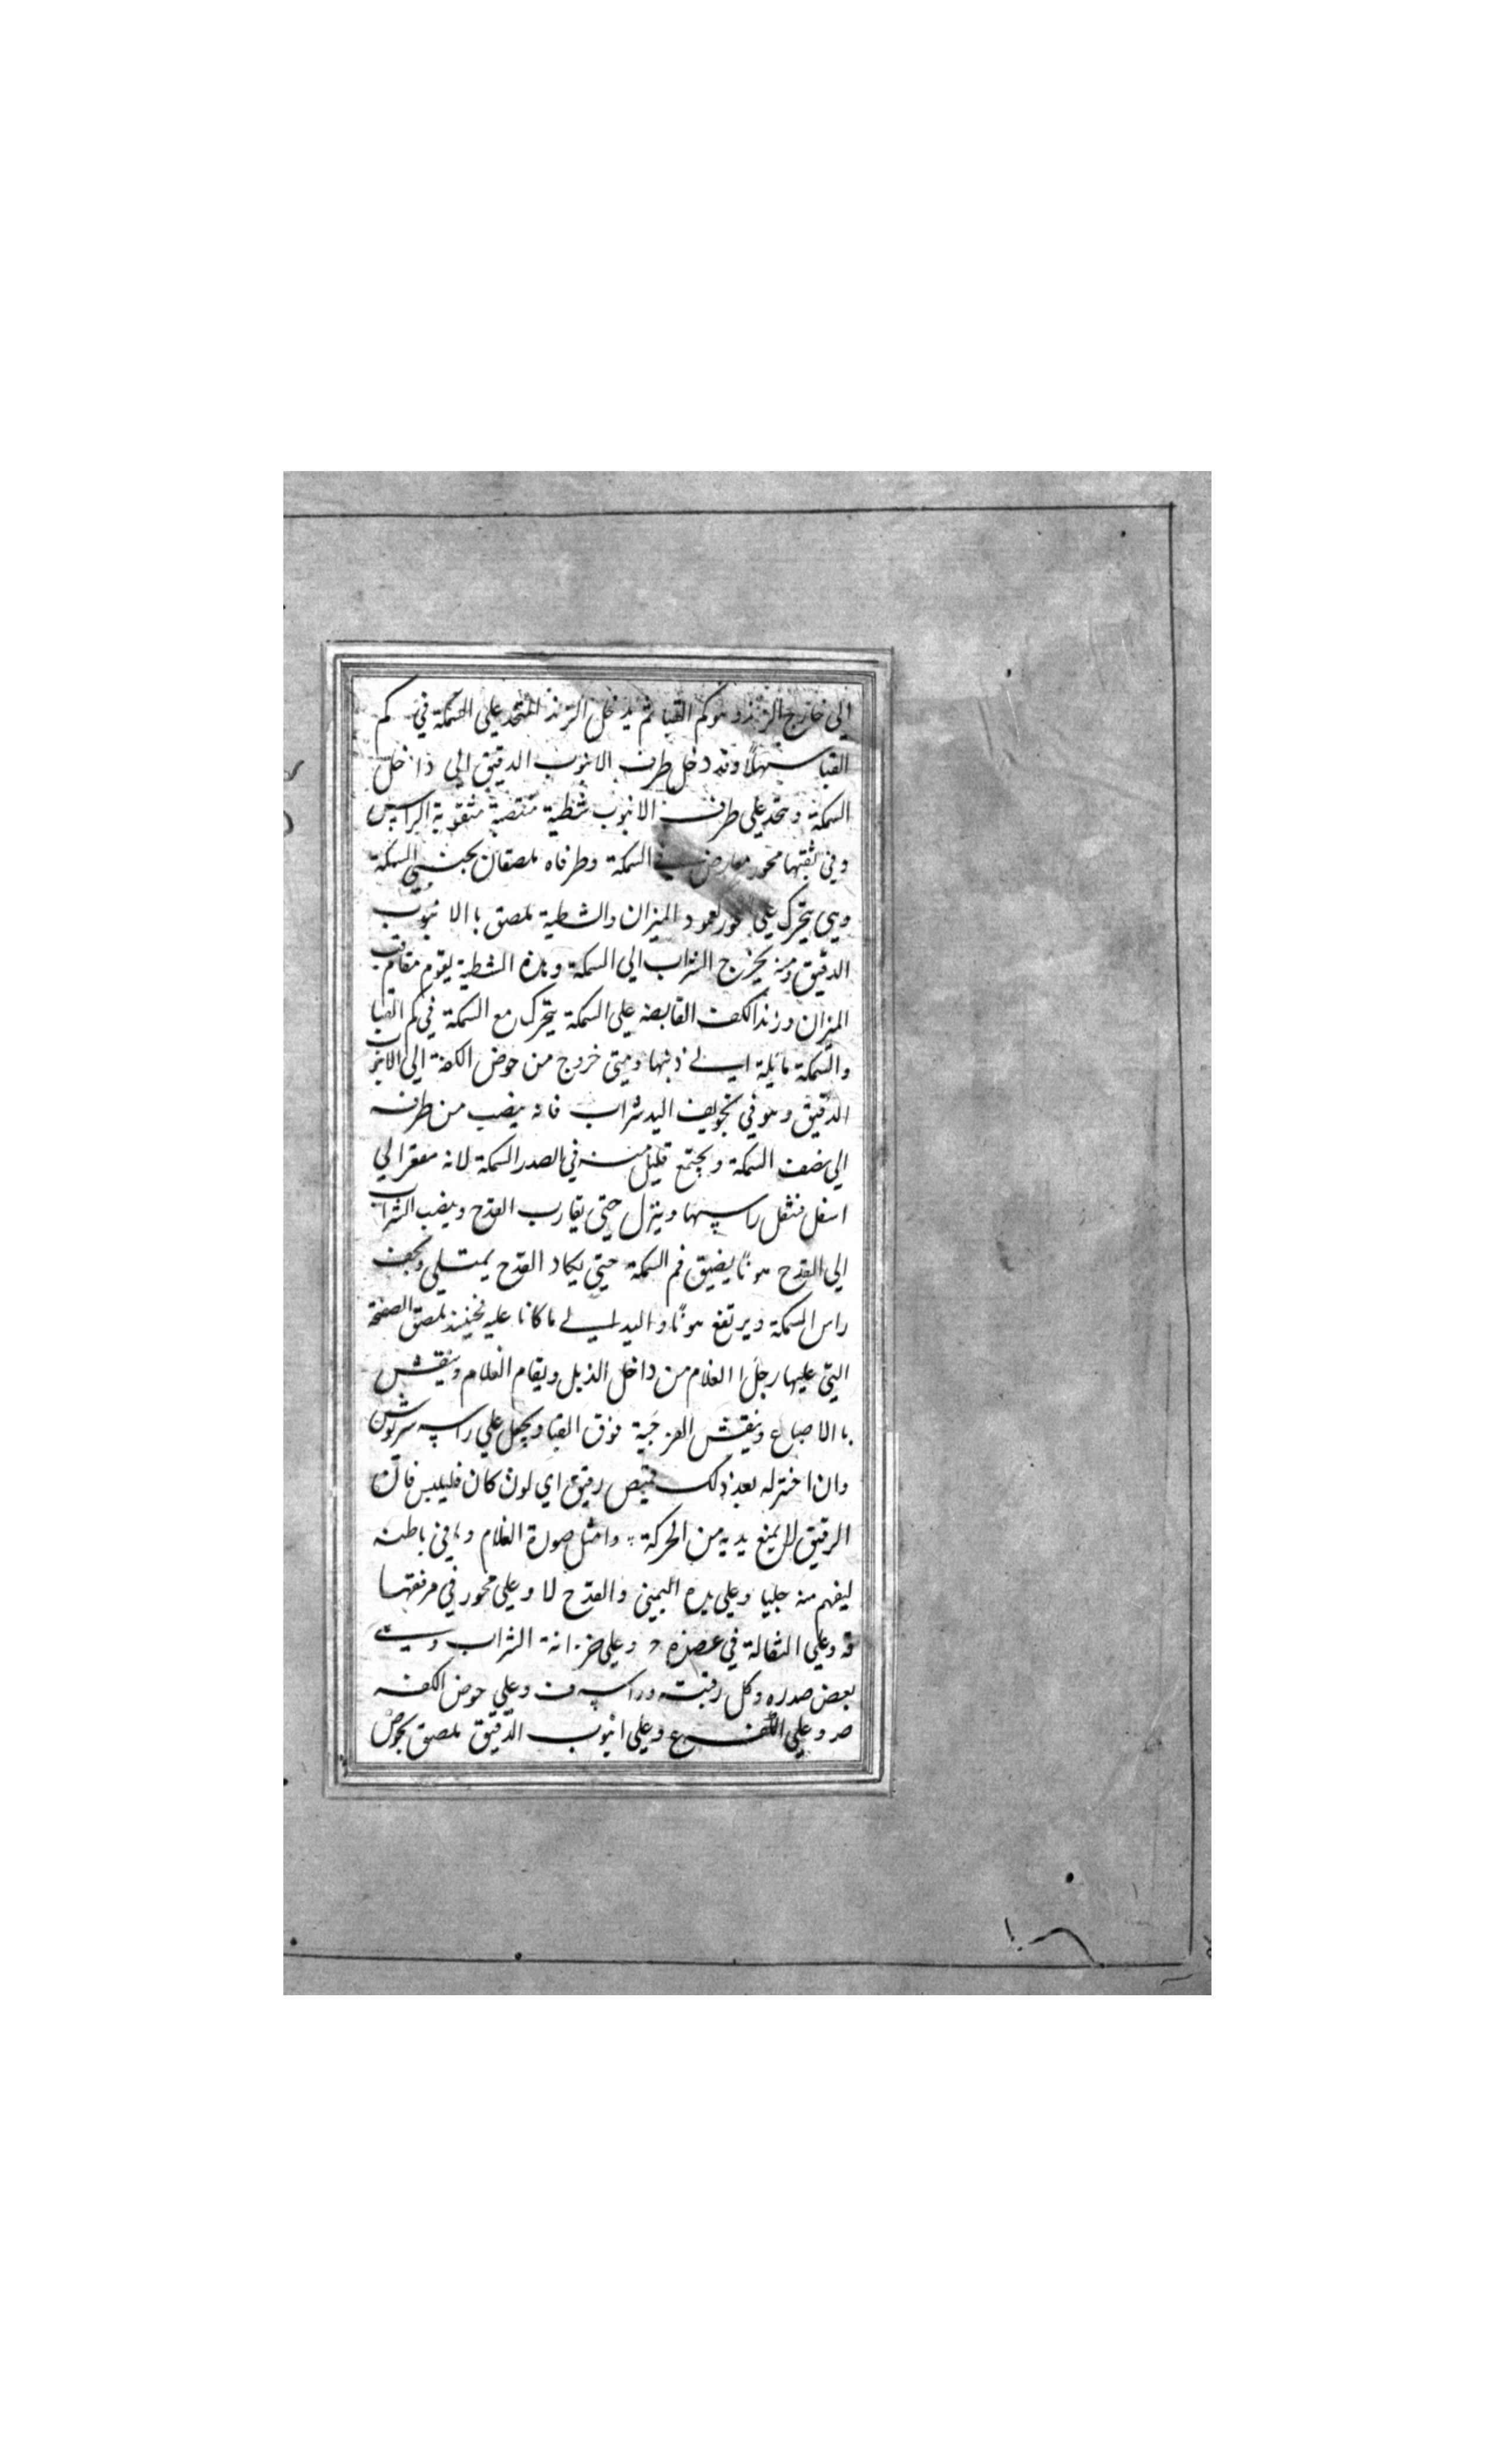 الي خارج الزند وهو كم القبا ثم يدخل الزند المتخد علي السمكة في كم
القبا سهلًا وقد دخل طرف الانبوب الدقيق الي داخل
السمكة ويتخد علي طرف الانبوب شظية منتصبة مثقوبة الراس
وفي ثقبها محور معارض في السمكة وطرفاه ملصقان بجنبي السمكة
وهي يتحرك علي محور لعمود الميزان والشظية ملصق باالانبوب
الدقيق ومنه يخرج الشراب الي السمكة وهذه الشظية يقوم مقام قب
الميزان وزند الكف القابضه علي السمكة يتحرك مع السمكة في كم القبا
والسمكة مايلة الي ذنبها ومتي خروج من حوض الكفة الي الانبوب
الدقيق وهو في تجويف اليد شراب فانه ينصب من طرفه
الي نصف السمكة ويجتمع قليل منه في الصدر السمكة لانه مقعر الي
اسفل فتثقل راسها وينزل حتي يقارب القدح وينصب الشراب
الي القدح هونًا يضيق فم السمكة حتي يكاد القدح يمتلي ويخف
راس السمكة ويرتفع هونًا واليد الي ما كانا عليه فحينئذ يلصق الصفحة
التي عليها رجلا الغلام من داخل الذيل ويقام الغلام وينقش
باالاصباغ وينقش الفرجية فوق القبا ويجعل علي راسه سربوش
وان اختر له بعد ذلك قميص رقيق اي لون كان فليلبس فان
الرقيق لا يمنع يديه من الحركة وامثل صورة الغلام وما في باطنه
ليفهم منه جليا وعلي يده اليمني والقدح لا وعلي محور في مرفقها
قه وعلي الثقالة في عضده وعلي خزانة الشراب وهي
بعض صدره وكل رقبته وراسه ف وعلي حوض الكفه
صر وعلي الكف ع وعلي انبوب الدقيق ملصق بحوض